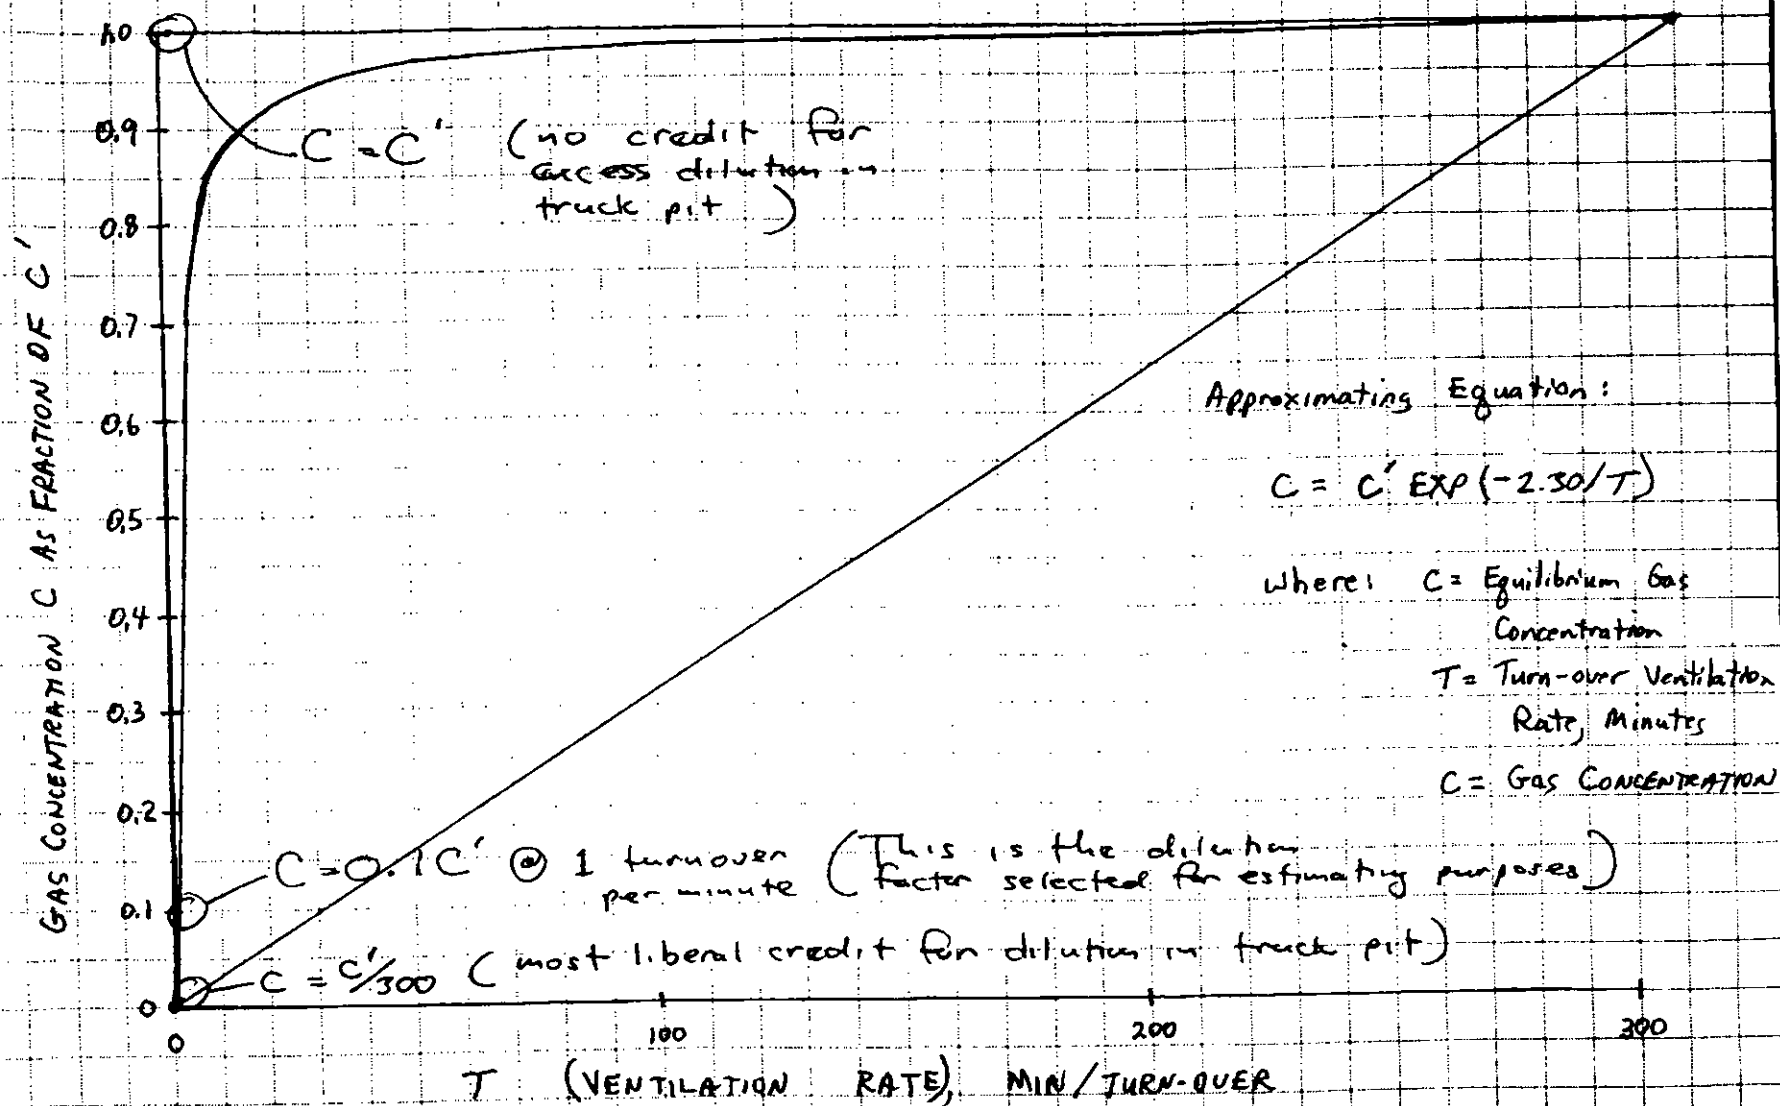 GAS CONCENTRATION C AS FRACTION OF C'
1.0
0.9
0.8
0.7
0.6
0.5
0.4
0.3
0.2
0.1
0
C = C' (no credit for
access dilution in
truck pit)
Approximating Equation:
C = C' EXP (-2.30/T)
where: C = Equilibrium Gas
Concentration
T = Turn-over Ventilation
Rate, Minutes
C = Gas CONCENTRATION
C = 0.1C' @ 1 turnover
per minute
(This is the dilution
factor selected for estimating purposes)
C = C'/300 (most liberal credit for dilution in truck pit)
0
100
200
300
T (VENTILATION RATE), MIN/TURN-OVER